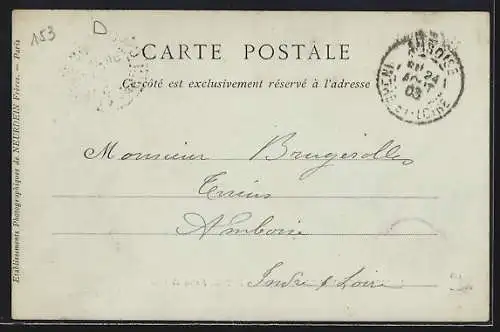 153
D
CARTE POSTALE
Ce côté est exclusivement réservé à l'adresse
AMBOISE
24
AOUT
03
INDRE-ET-LOIRE
Monsieur Brugerolles
Amboise
Indre & Loire
Etablissements Photographiques de NEURDEIN Frères. — Paris